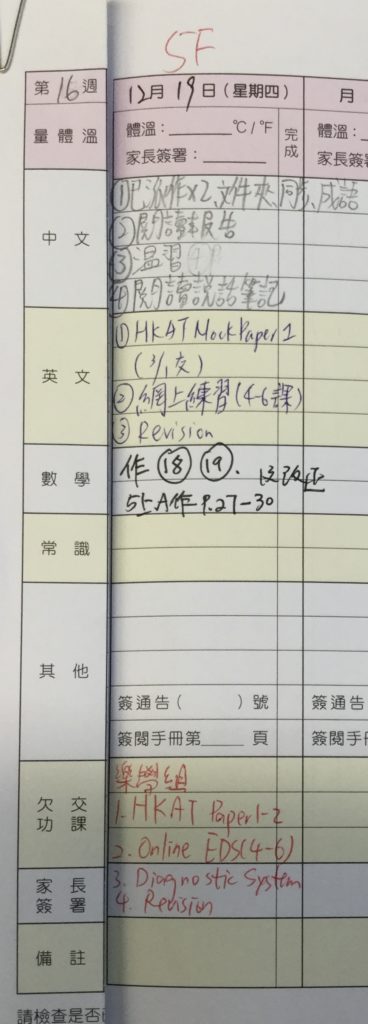 5F
第16週 12月19日(星期四) 月
量體溫 體溫:______ °C/°F 完成 體溫:
家長簽署:______ 家長簽署
中文 ①已派作x2,文件夾,同步,成語
②閱讀報告
③温習
④閱讀説話筆記
英文 ① HKAT Mock Paper 1
(3/1交)
②網上練習(4-6課)
③ Revision
數學 作⑱⑲. 改正
5上A作 P.27-30
常識
其他
簽通告( )號 簽通告
簽閱手冊第____頁 簽閱手冊
欠交功課 樂學組
1. HKAT Paper 1-2
2. Online EDS(4-6)
家長簽署 3. Diagnostic System
4. Revision
備註
請檢查是否已